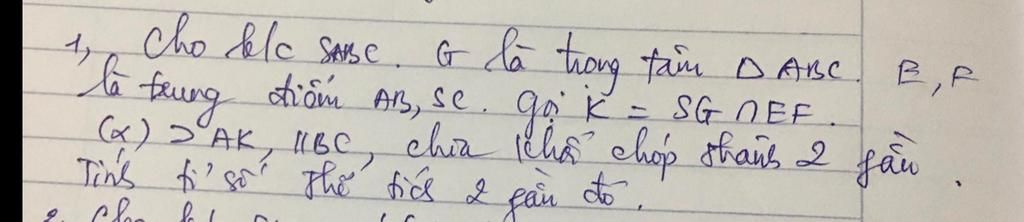 1, Cho k/c SABC. G là trọng tâm Δ ABC. E, F
là trung điểm AB, SC. gọi K = SG ∩ EF.
(α) ⊃ AK, // BC, chia khối chóp thành 2 phần.
Tính tỉ số thể tích 2 phần đó.
2. Cho